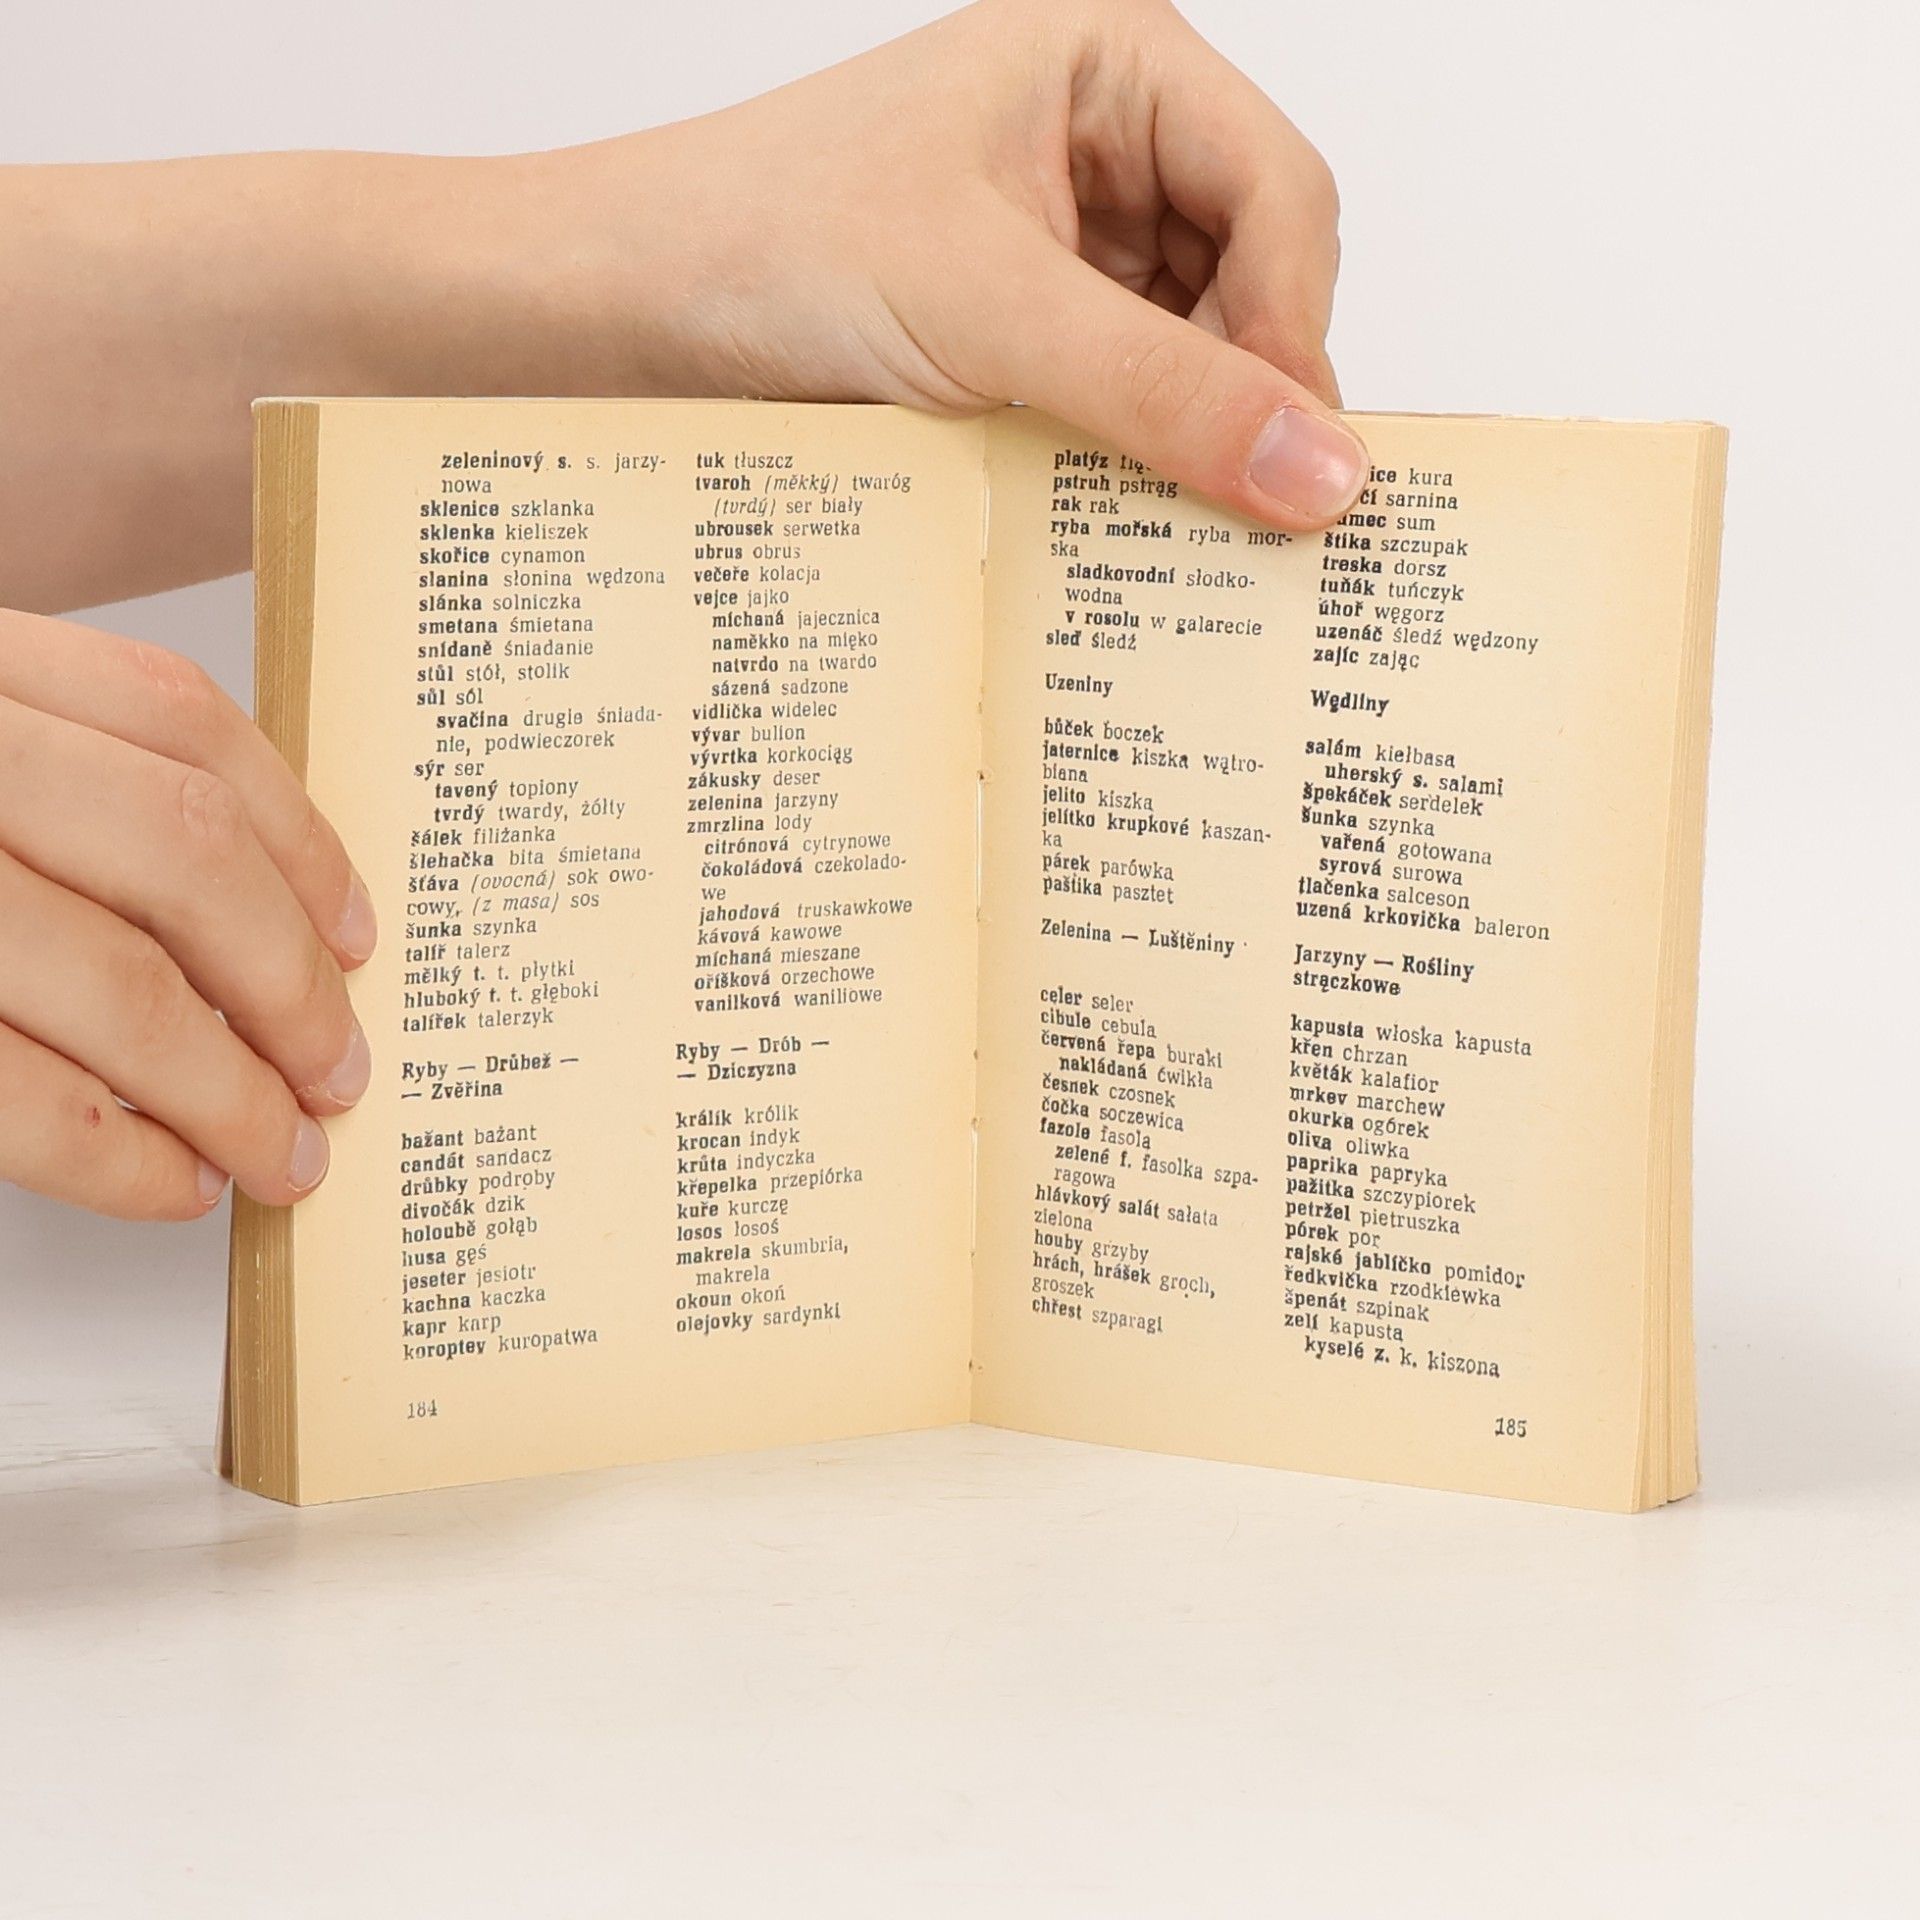 zeleninový s. s. jarzy-
nowa
sklenice szklanka
sklenka kieliszek
skořice cynamon
slanina słonina wędzona
slánka solniczka
smetana śmietana
snídaně śniadanie
stůl stół, stolik
sůl sól
svačina drugie śniada-
nie, podwieczorek
sýr ser
tavený topiony
tvrdý twardy, żółty
šálek filiżanka
šlehačka bita śmietana
šťáva (ovocná) sok owo-
cowy, (z masa) sos
šunka szynka
talíř talerz
mělký t. t. płytki
hluboký t. t. głęboki
talířek talerzyk
Ryby — Drůbež —
— Zvěřina
bažant bażant
candát sandacz
drůbky podroby
divočák dzik
holoubě gołąb
husa gęś
jeseter jesiotr
kachna kaczka
kapr karp
koroptev kuropatwa
184
tuk tłuszcz
tvaroh (měkký) twaróg
(tvrdý) ser biały
ubrousek serwetka
ubrus obrus
večeře kolacja
vejce jajko
míchaná jajecznica
naměkko na mięko
natvrdo na twardo
sázená sadzone
vidlička widelec
vývar bulion
vývrtka korkociąg
zákusky deser
zelenina jarzyny
zmrzlina lody
citrónová cytrynowe
čokoládová czekolado-
we
jahodová truskawkowe
kávová kawowe
míchaná mieszane
oříšková orzechowe
vanilková waniliowe
Ryby — Drób —
— Dziczyzna
králík królik
krocan indyk
krůta indyczka
křepelka przepiórka
kuře kurczę
losos łosoś
makrela skumbria,
makrela
okoun okoń
olejovky sardynki
platýz
pstruh pstrąg
rak rak
ryba mořská ryba mor-
ska
sladkovodní słodko-
wodna
v rosolu w galarecie
sleď śledź
Uzeniny
bůček boczek
jaternice kiszka wątro-
biana
jelito kiszka
jelítko krupkové kaszan-
ka
párek parówka
paštika pasztet
Zelenina — Luštěniny
celer seler
cibule cebula
červená řepa buraki
nakládaná ćwikła
česnek czosnek
čočka soczewica
fazole fasola
zelené f. fasolka szpa-
ragowa
hlávkový salát sałata
zielona
houby grzyby
hrách, hrášek groch,
groszek
chřest szparagi
kura
sarnina
sum
štika szczupak
treska dorsz
tuňák tuńczyk
úhoř węgorz
uzenáč śledź wędzony
zajíc zając
Wędliny
salám kiełbasa
uherský s. salami
špekáček serdelek
šunka szynka
vařená gotowana
syrová surowa
tlačenka salceson
uzená krkovička baleron
Jarzyny — Rośliny
strączkowe
kapusta włoska kapusta
křen chrzan
květák kalafior
mrkev marchew
okurka ogórek
oliva oliwka
paprika papryka
pažitka szczypiorek
petržel pietruszka
pórek por
rajské jablíčko pomidor
ředkvička rzodkiewka
špenát szpinak
zelí kapusta
kyselé z. k. kiszona
185